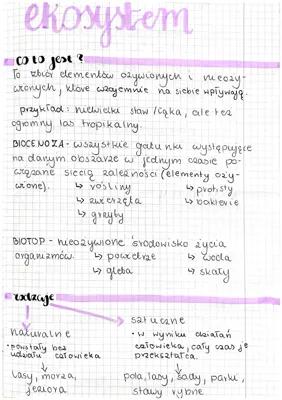 ekosystem
co to jest?
To zbiór elementów ożywionych i nieoży-
wionych, które wzajemnie na siebie wpływają.
przykład: niewielki staw/łąka, ale też
ogromny las tropikalny.
BIOCENOZA - wszystkie gatunki występujące
na danym obszarze w jednym czasie po-
wiązane siecią zależności (elementy oży-
wione). ↳ rośliny ↳ protisty
↳ zwierzęta ↳ bakterie
↳ grzyby
BIOTOP - nieożywione środowisko życia
organizmów. ↳ powietrze ↳ woda
↳ gleba ↳ skały
rodzaje
naturalne
• powstały bez
udziału człowieka
lasy, morza,
jeziora
sztuczne
• w wyniku działań
człowieka, cały czas je
przekształca.
pola, lasy, sady, parki,
stawy rybne